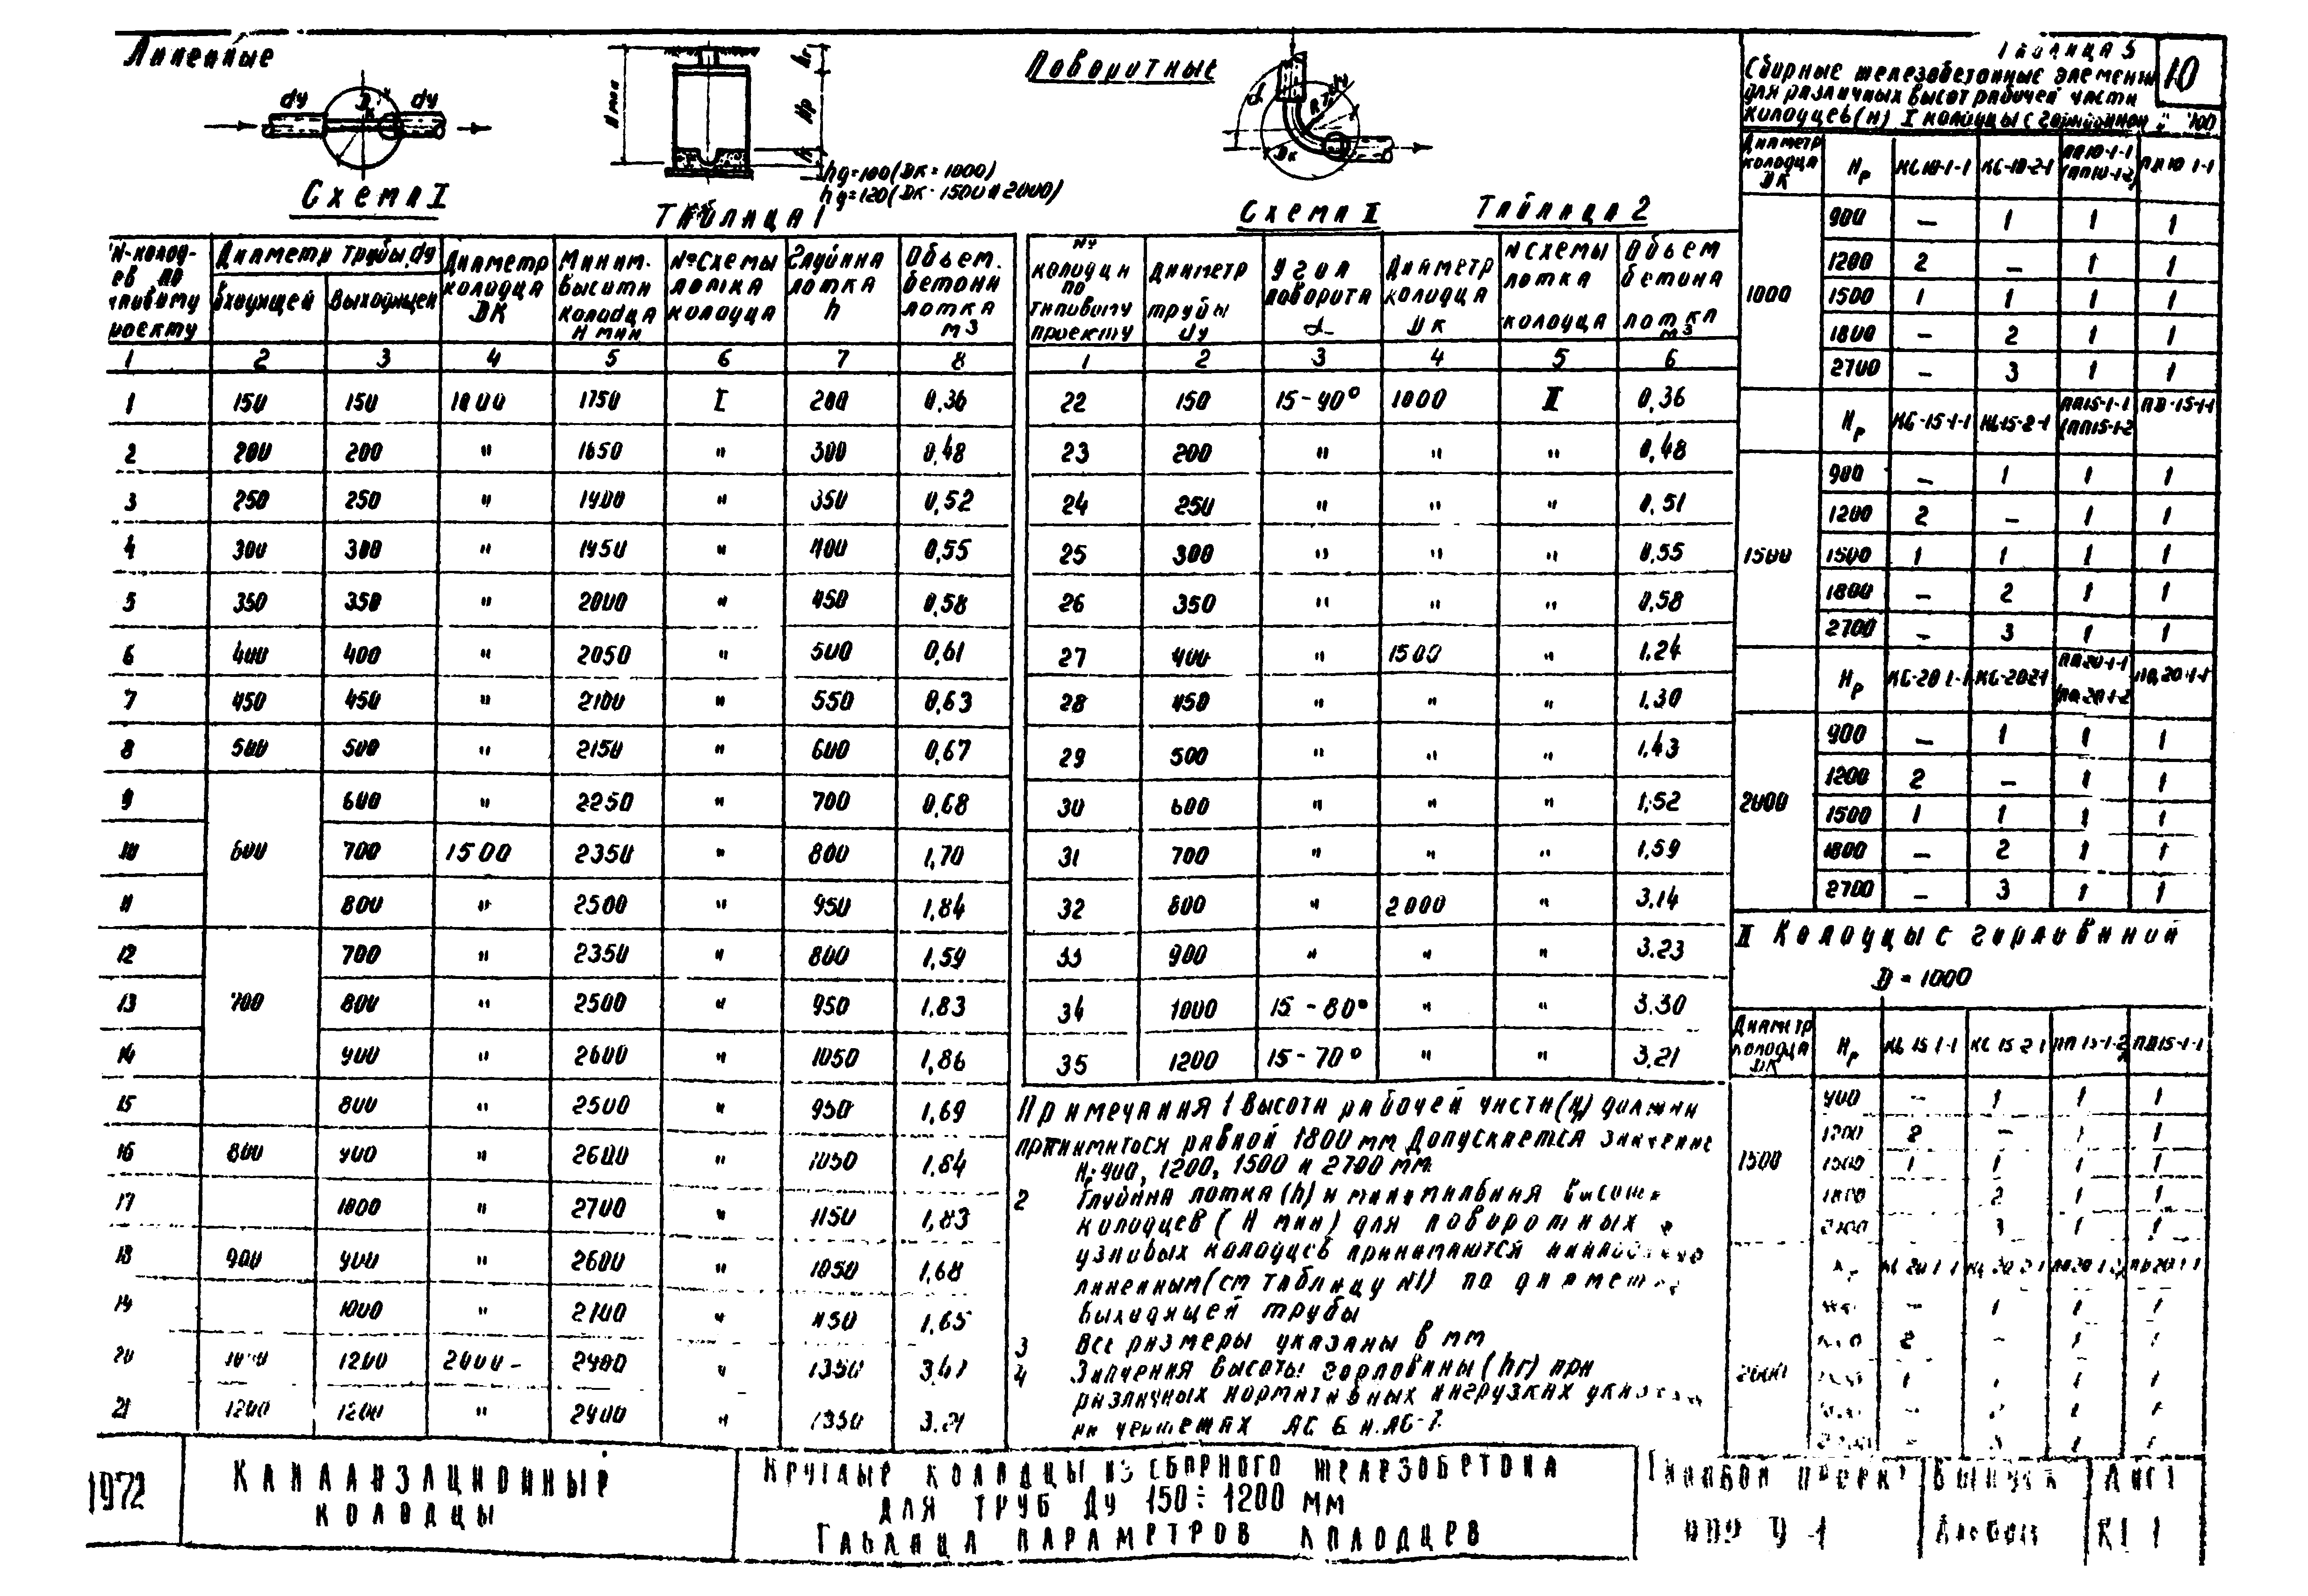 Линейные
dу dу
Схема I
hд=100 (DК=1000)
hд=120 (DК-1500 и 2000)
Поворотные
Схема II
Таблица 1
N-колод-
Диаметр трубы, dу
входящей
выходящей
Диаметр колодца DК
Миним. высота колодца H мин
№ схемы лотка колодца
Глубина лотка h
Объем. бетона лотка м3
1 2 3 4 5 6 7 8
1 150 150 1000 1750 I 200 0,36
2 200 200 " 1650 " 300 0,48
3 250 250 " 1900 " 350 0,52
4 300 300 " 1950 " 400 0,55
5 350 350 " 2000 " 450 0,58
6 400 400 " 2050 " 500 0,61
7 450 450 " 2100 " 550 0,63
8 500 500 " 2150 " 600 0,67
9 600 " 2250 " 700 0,68
10 600 700 1500 2350 " 800 1,70
11 800 " 2500 " 950 1,84
12 700 " 2350 " 800 1,59
13 700 800 " 2500 " 950 1,83
14 900 " 2600 " 1050 1,86
15 800 " 2500 " 950 1,69
16 800 900 " 2600 " 1050 1,84
17 1000 " 2700 " 1150 1,83
18 900 900 " 2600 " 1050 1,68
19 1000 " " 1,65
20 1200 2000 2900 " 1350
21 1200 1200 " 2900 " 1350 3.21
Таблица 2
№ колодца по типовому проекту
Диаметр трубы dу
Угол поворота α
Диаметр колодца DК
N схемы лотка колодца
Объем бетона лотка м3
1 2 3 4 5 6
22 150 15-90° 1000 II 0,36
23 200 " " " 0,48
24 250 " " " 0,51
25 300 " " " 0,55
26 350 " " " 0,58
27 400 " 1500 " 1.24
28 450 " " " 1.30
29 500 " " " 1,43
30 600 " " " 1,52
31 700 " " " 1,59
32 800 " 2000 " 3.14
33 900 " " " 3.23
34 1000 15-80° " " 3.30
35 1200 15-70° " " 3,21
Примечания 1 Высота рабочей части (Нр) должна
приниматься равной 1800 мм Допускается значение
Нр 900, 1200, 1500 и 2700 мм
2 Глубина лотка (h) и минимальная высота
колодцев (Н мин) для поворотных
узловых колодцев принимаются
линейным (см таблицу N1) по
выходящей трубы
3 Все размеры указаны в мм
4 Значения высоты горловины (hг) при
различных нормативных нагрузках
на чертежах АС 6 и АС-7
Таблица
Сборные железобетонные элементы
для различных высот рабочей части
колодцев (н) I колодцы с горловиной 700
10
Диаметр колодца DК Нр КС10-1-1 КС-10-2-1 ПП10-1-1 (ПП10-1-2) ПД10 1-1
1000
900 – 1 1 1
1200 2 – 1 1
1500 1 1 1 1
1800 – 2 1 1
2700 – 3 1 1
Нр КС-15-1-1 КС15-2-1 ПП15-1-1 (ПП15-1-2 ПД-15-1-1
1500
900 – 1 1 1
1200 2 – 1 1
1500 1 1 1 1
1800 – 2 1 1
2700 – 3 1 1
Нр КС-20 1-1 КС-20-2-1 ПП20-1-1
2000
900 – 1 1 1
1200 2 – 1 1
1500 1 1 1 1
1800 – 2 1 1
2700 – 3 1 1
II Колодцы с горловиной
D = 1000
Диаметр колодца DК Нр КС 15 1-1 КС 15 2-1 ПП 15-1-2 ПД15-1-1
1500
900 – 1 1 1
1200 2 – 1 1
1500 1 1 1 1
1800 2 1 1
3 1 1
1972
КАНАЛИЗАЦИОННЫЕ
КОЛОДЦЫ
КРУГЛЫЕ КОЛОДЦЫ ИЗ СБОРНОГО ЖЕЛЕЗОБЕТОНА
ДЛЯ ТРУБ ДУ 150÷1200 ММ
ТАБЛИЦА ПАРАМЕТРОВ КОЛОДЦЕВ
ВЫПУСК
АЛЬБОМ
ЛИСТ